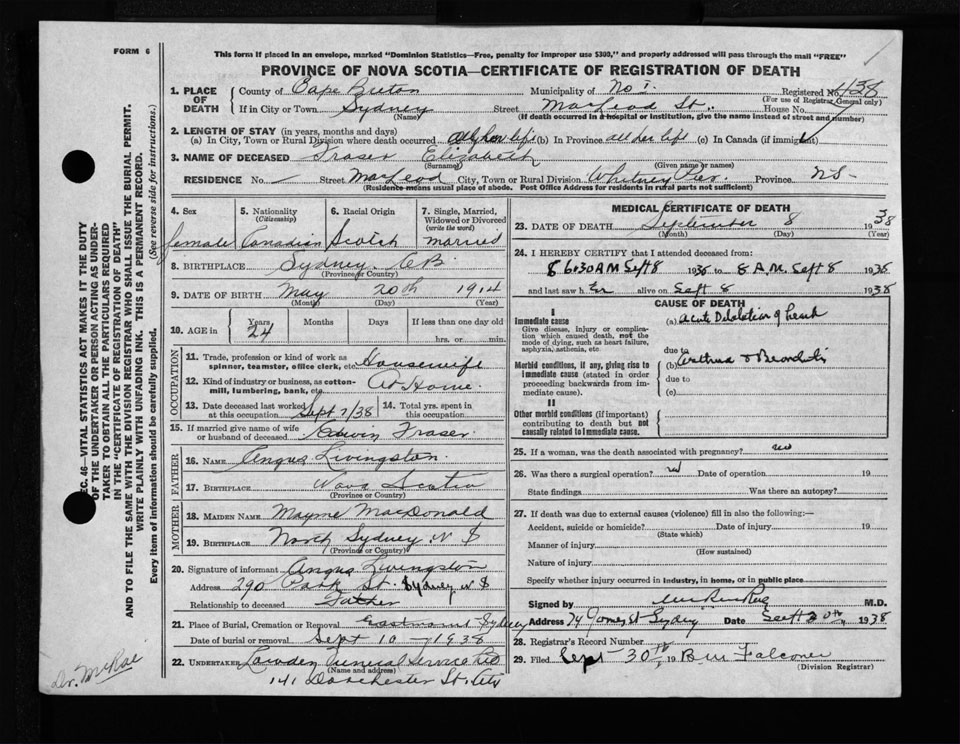 FORM 6
This form if placed in an envelope, marked "Dominion Statistics—Free, penalty for improper use $300," and properly addressed will pass through the mail "FREE"
PROVINCE OF NOVA SCOTIA—CERTIFICATE OF REGISTRATION OF DEATH
1. PLACE OF DEATH County of Cape Breton Municipality of No 1. Registered No. 438
(For use of Registrar General only)
If in City or Town Sydney Street MacLeod St. House No.
(Name) (If death occurred in a hospital or institution, give the name instead of street and number)
2. LENGTH OF STAY (in years, months and days)
(a) In City, Town or Rural Division where death occurred all her life (b) In Province all her life (c) In Canada (if immigrant)
3. NAME OF DECEASED Fraser Elizabeth
(Surname) (Given name or names)
RESIDENCE No. — Street MacLeod City, Town or Rural Division Whitney Pier Province NS-
(Residence means usual place of abode. Post Office Address for residents in rural parts not sufficient)
4. Sex 5. Nationality (Citizenship) 6. Racial Origin 7. Single, Married, Widowed or Divorced (write the word)
female Canadian Scotch married
8. BIRTHPLACE Sydney. C.B.
(Province or Country)
9. DATE OF BIRTH May 20th 1914
(Month) (Day) (Year)
10. AGE in Years Months Days If less than one day old
24 hrs. or min.
OCCUPATION
11. Trade, profession or kind of work as spinner, teamster, office clerk, etc. Housewife
12. Kind of industry or business, as cotton-mill, lumbering, bank, etc. At Home.
13. Date deceased last worked at this occupation Sept 7/38 14. Total yrs. spent in this occupation
15. If married give name of wife or husband of deceased Edwin Fraser
FATHER
16. NAME Angus Livingston.
17. BIRTHPLACE Nova Scotia
(Province or Country)
MOTHER
18. MAIDEN NAME Mayme MacDonald
19. BIRTHPLACE North Sydney N S
(Province or Country)
20. Signature of informant Angus Livingston
Address 290 Park St. Sydney N S
Relationship to deceased Father
21. Place of Burial, Cremation or Removal Eastmount Sydney
Date of burial or removal Sept 10 - 1938
22. UNDERTAKER Lowden Funeral Service Ltd
(Name and address)
141 Dorchester St.
MEDICAL CERTIFICATE OF DEATH
23. DATE OF DEATH September 8 1938
(Month) (Day) (Year)
24. I HEREBY CERTIFY that I attended deceased from:
6:30 AM Sept 8 1938 to 8 A.M. Sept 8 1938
and last saw her alive on Sept 8 1938
CAUSE OF DEATH
I
Immediate cause (a) Acute Dilatation of heart
Give disease, injury or complication which caused death, not the mode of dying, such as heart failure, asphyxia, asthenia, etc
due to
Morbid conditions, if any, giving rise to immediate cause (stated in order proceeding backwards from immediate).
(b) Asthma & Bronchitis
due to
(c)
II
Other morbid conditions (if important) contributing to death but not causally related to immediate cause.
25. If a woman, was the death associated with pregnancy? no
26. Was there a surgical operation? no Date of operation 19
State findings Was there an autopsy?
27. If death was due to external causes (violence) fill in also the following:—
Accident, suicide or homicide? Date of injury 19
(State which)
Manner of injury
(How sustained)
Nature of injury
Specify whether injury occurred in industry, in home, or in public place
Signed by M.D.
Address 74 St Sydney Date Sept 20th 1938
28. Registrar's Record Number
29. Filed Sept 30th 19 Falconer
(Division Registrar)
SEC. 46—VITAL STATISTICS ACT MAKES IT THE DUTY
OF THE UNDERTAKER OR PERSON ACTING AS UNDER-
TAKER TO OBTAIN ALL THE PARTICULARS REQUIRED
IN THE "CERTIFICATE OF REGISTRATION OF DEATH"
AND TO FILE THE SAME WITH THE DIVISION REGISTRAR WHO SHALL ISSUE THE BURIAL PERMIT.
WRITE PLAINLY WITH UNFADING INK. THIS IS A PERMANENT RECORD.
Every item of information should be carefully supplied. (See reverse side for instructions.)
Dr. McRae